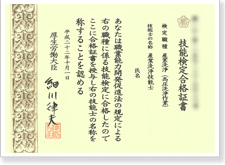 技能検定合格証書
検定職種 産業洗浄(高圧洗浄作業)
技能士の名称 産業洗浄技能士
氏名
あなたは職業能力開発促進法の規定による
右の職種に係る技能検定に合格したので
ここに合格証書を授与し右の技能士の名称を
称することを認める
平成二十二年十月一日
厚生労働大臣
細川律夫